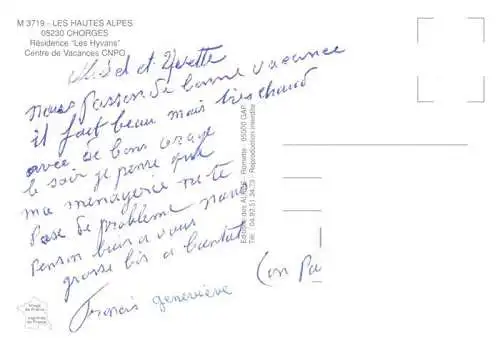 M 3719 - LES HAUTES ALPES
05230 CHORGES
Résidence "Les Hyvans"
Centre de Vacances CNPO
et Yvette
nous passon de bonne vacance
il fait beau mais tres chaud
avec de bons orage
le soir je pense que
ma menagerie ne te
pose de problème nous
penson bien a vous
grosse bis a bientot
Francis geneviève
Editions des ALPES - Romette - 05000 GAP
Reproduction interdite